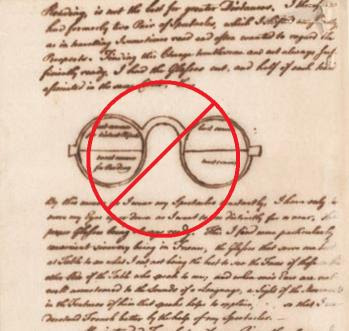 Reading is not the best for greater Distances. I therefore
had formerly two Pair of Spectacles, which I shifted occasionally
as in travelling I sometimes read and often wanted to regard the
Prospects. Finding this Change troublesome and not always suf-
ficiently ready, I had the Glasses cut, and half of each kind
associated in the same
Least convex
for distant Objects
most convex
for Reading
Least convex
most convex
By this means, as I wear my Spectacles constantly, I have only to
move my Eyes up or down as I want to see distinctly far or near, the
proper Glasses being always ready. This I find more particularly
convenient since my being in France, the Glasses that serve me
at Table to see what I eat, not being the best to see the Faces of those on the
other Side of the Table who speak to me; and when one's Ears are not
well accustomed to the Sounds of a Language, a Sight of the Movements
in the Features of him that speaks helps to explain, so that I un-
derstand French better by the help of my Spectacles.